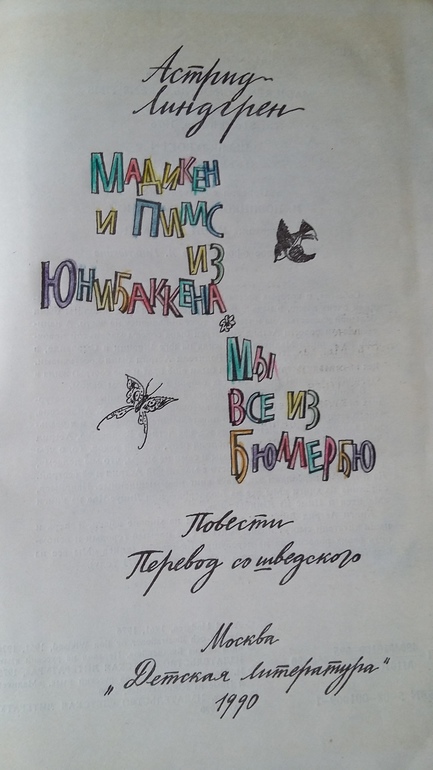 Астрид
Линдгрен
Мадикен
и Пимс
из
Юнибаккена
Мы
все из
Бюллербю
Повести
Перевод со шведского
Москва
„Детская литература“
1990